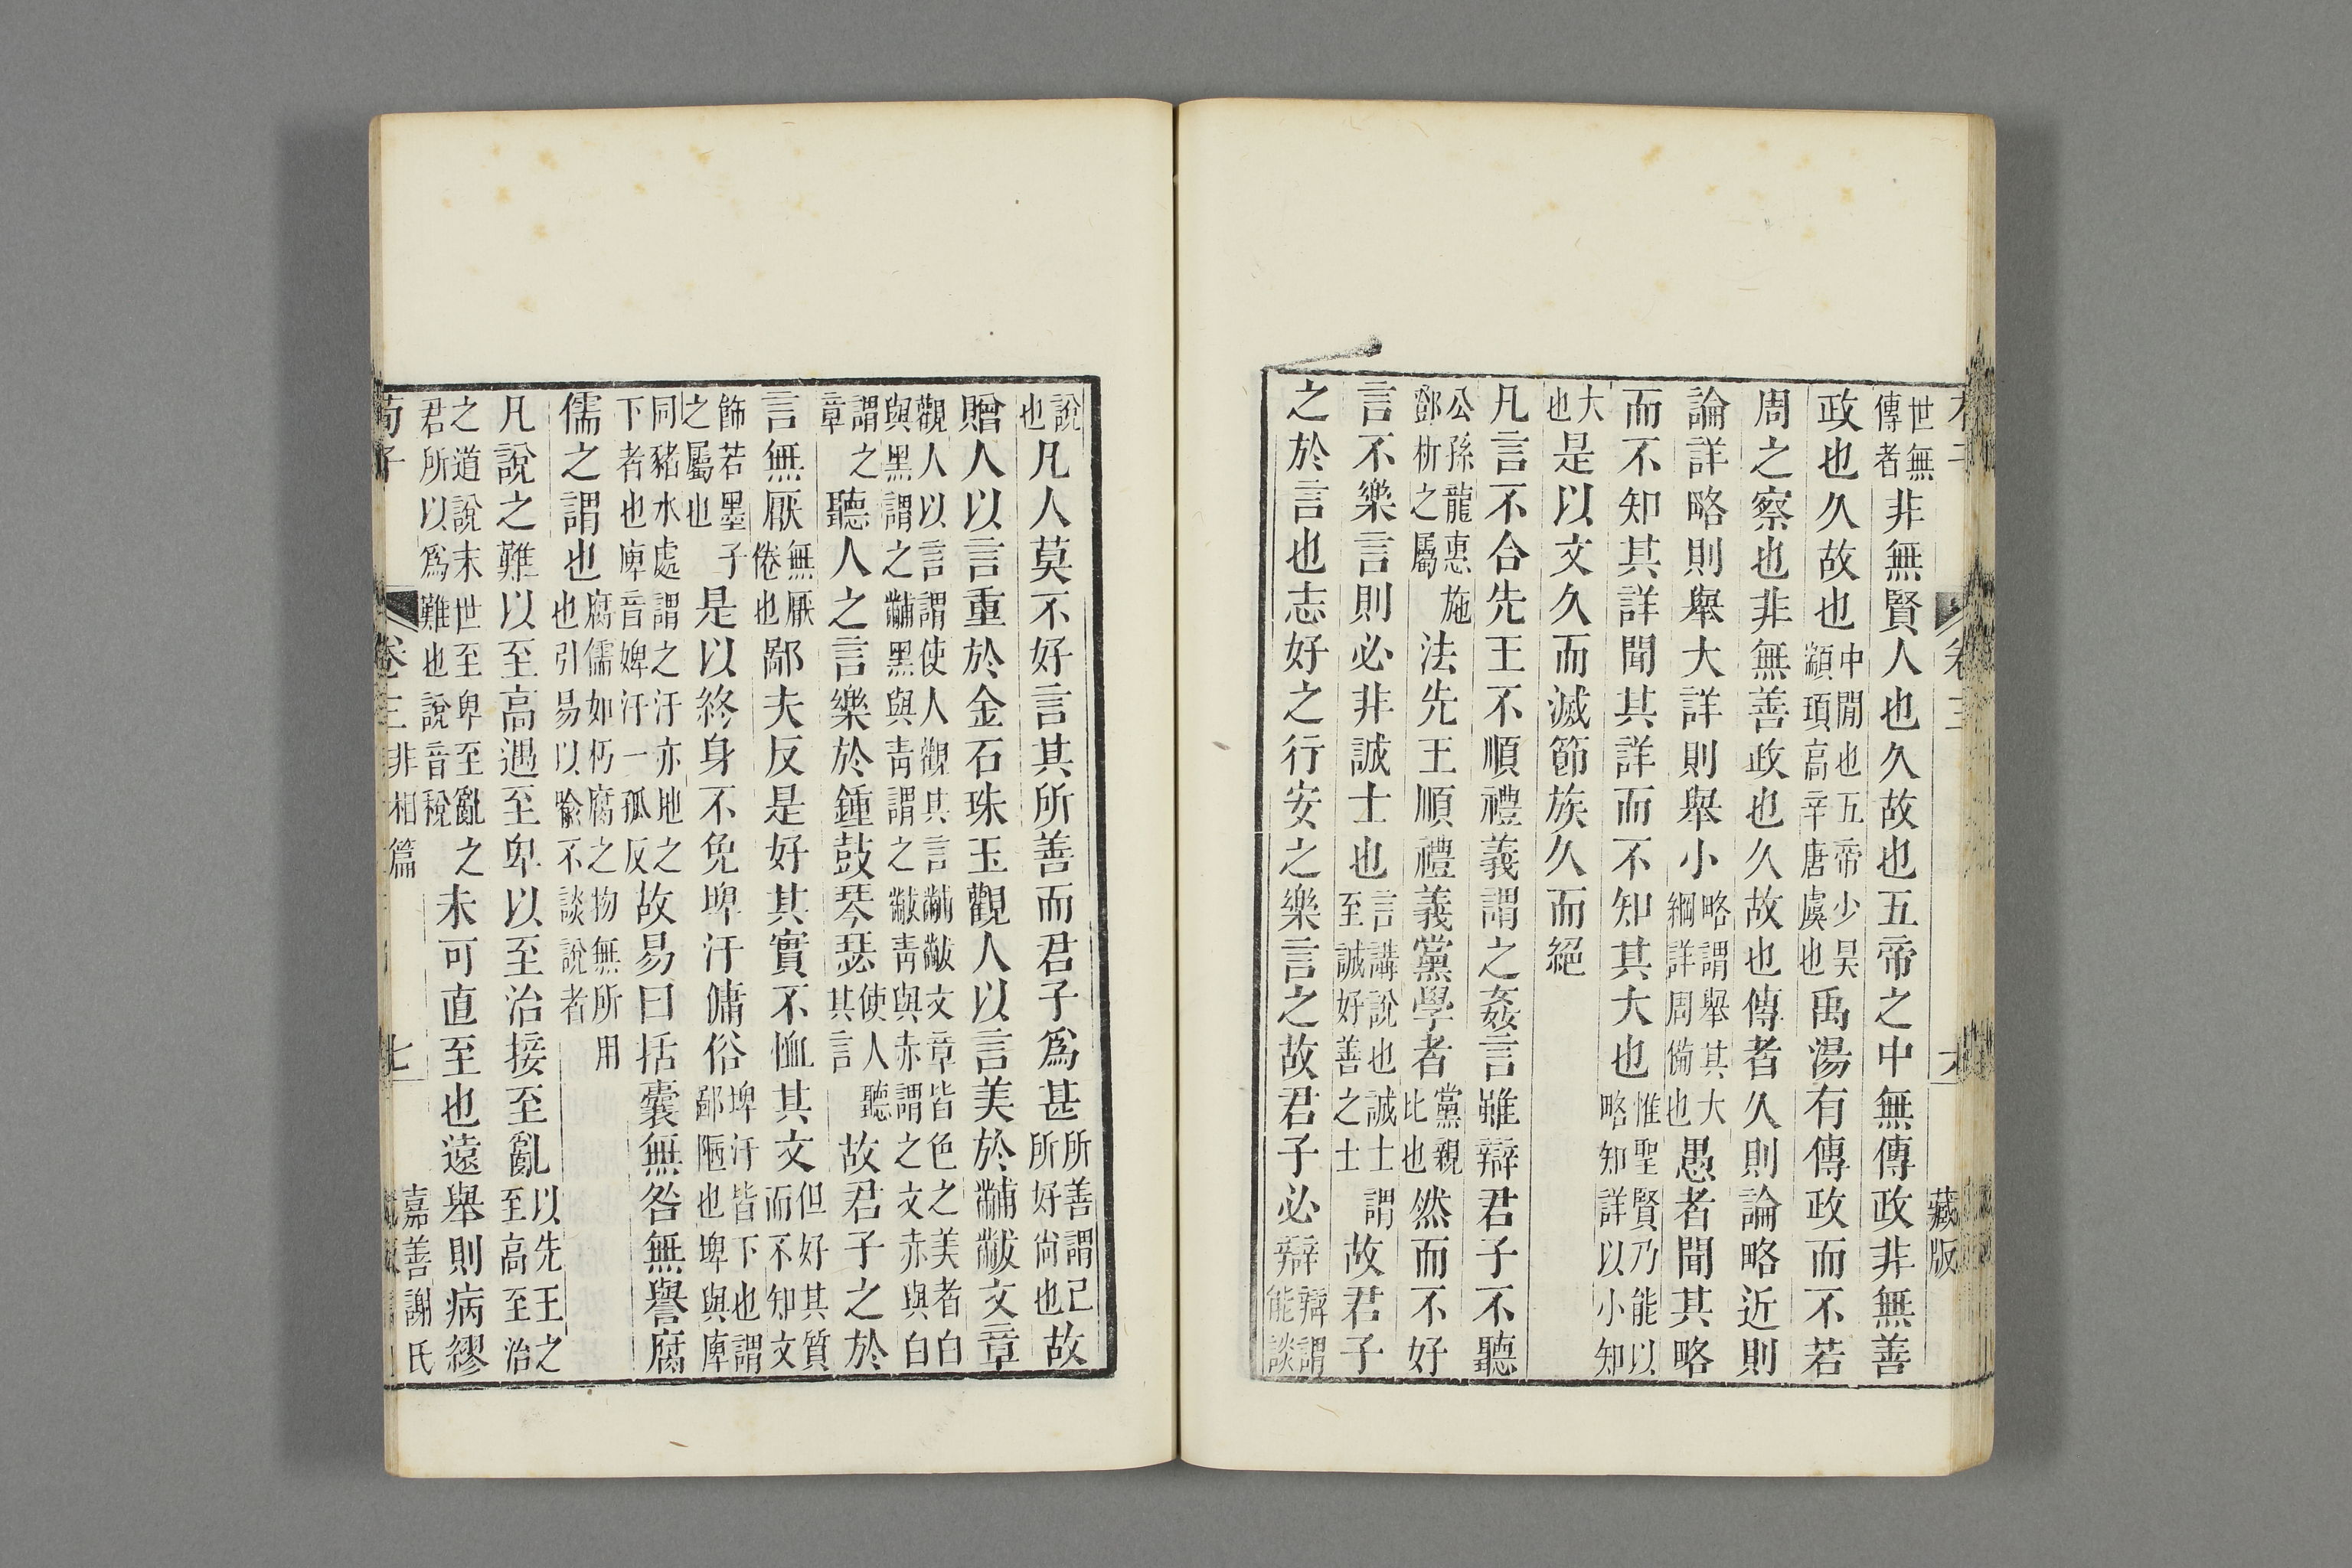 卷三 藏版
世無傳者非無賢人也久故也五帝之中無傳政非無善
政也久故也中閒也五帝少昊顓頊高辛唐虞也禹湯有傳政而不若
周之察也非無善政也久故也傳者久則論略近則
論詳略則舉大詳則舉小略謂舉其大綱詳周備也愚者聞其略
而不知其詳聞其詳而不知其大也惟聖賢乃能以略知詳以小知
大也是以文久而滅節族久而絕
凡言不合先王不順禮義謂之姦言雖辯君子不聽
公孫龍惠施鄧析之屬法先王順禮義黨學者黨親比也然而不好
言不樂言則必非誠士也言講說也誠士謂至誠好善之士故君子
之於言也志好之行安之樂言之故君子必辯辯謂能談
說也凡人莫不好言其所善而君子爲甚所善謂己所好尙也故
贈人以言重於金石珠玉觀人以言美於黼黻文章
觀人以言謂使人觀其言黼黻文章皆色之美者白與黑謂之黼黑與靑謂之黻靑與赤謂之文赤與白
謂之章聽人之言樂於鍾鼓琴瑟使人聽其言故君子之於
言無厭無厭倦也鄙夫反是好其實不恤其文但好其質而不知文
飾若墨子之屬也是以終身不免埤汙傭俗埤汙皆下也謂鄙陋也埤與庳
同豬水處謂之汙亦地之下者也庳音婢汙一孤反故易曰括囊無咎無譽腐
儒之謂也腐儒如朽腐之物無所用也引易以喻不談說者
凡說之難以至高遇至卑以至治接至亂以先王之至高至治
之道說末世至卑至亂之君所以爲難也說音稅未可直至也遠舉則病繆
荀子 卷三 非相篇 七 嘉善謝氏